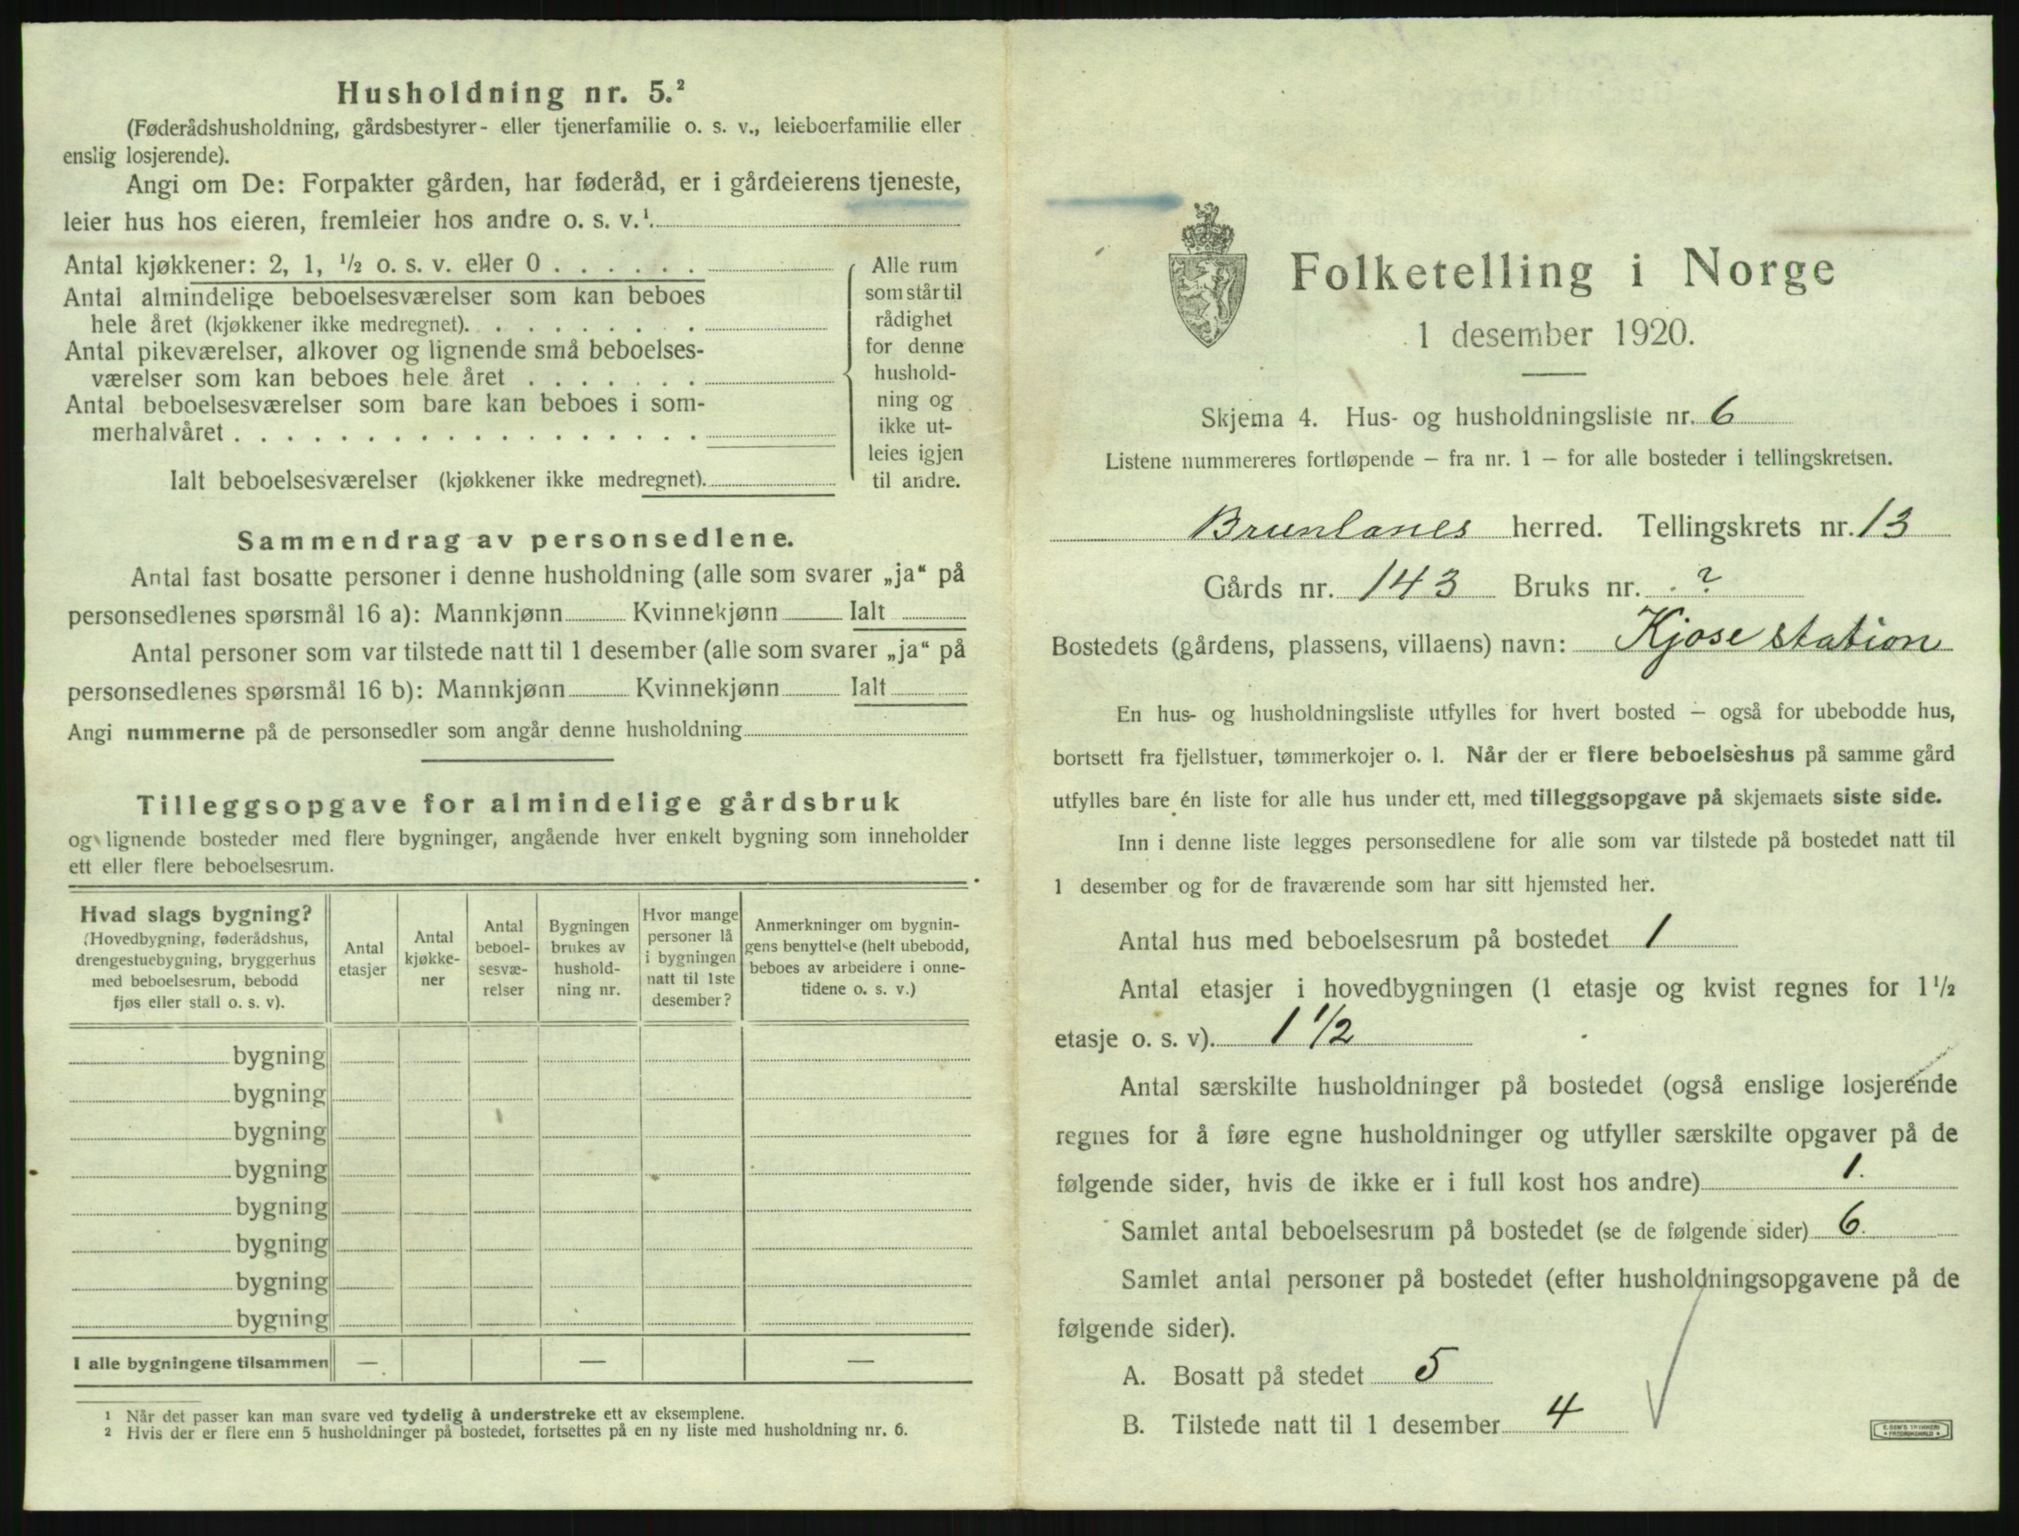 Husholdning nr. 5.²
(Føderådshusholdning, gårdsbestyrer- eller tjenerfamilie o. s. v., leieboerfamilie eller
enslig losjerende).
Angi om De: Forpakter gården, har føderåd, er i gårdeierens tjeneste,
leier hus hos eieren, fremleier hos andre o. s. v.¹.
Antal kjøkkener: 2, 1, ½ o. s. v. eller 0 . . . . . .
Antal almindelige beboelsesværelser som kan beboes
hele året (kjøkkener ikke medregnet). . . . . . . . .
Antal pikeværelser, alkover og lignende små beboelses-
værelser som kan beboes hele året . . . . . . .
Antal beboelsesværelser som bare kan beboes i som-
merhalvåret . . . . . . . . . . . . . . . . . .
Ialt beboelsesværelser (kjøkkener ikke medregnet).
Alle rum
som står til
rådighet
for denne
hushold-
ning og
ikke ut-
leies igjen
til andre.
Sammendrag av personsedlene.
Antal fast bosatte personer i denne husholdning (alle som svarer „ja“ på
personsedlenes spørsmål 16 a): Mannkjønn Kvinnekjønn Ialt
Antal personer som var tilstede natt til 1 desember (alle som svarer „ja“ på
personsedlenes spørsmål 16 b): Mannkjønn Kvinnekjønn Ialt
Angi nummerne på de personsedler som angår denne husholdning
Tilleggsopgave for almindelige gårdsbruk
og lignende bosteder med flere bygninger, angående hver enkelt bygning som inneholder
ett eller flere beboelsesrum.
Hvad slags bygning?
(Hovedbygning, føderådshus,
drengestuebygning, bryggerhus
med beboelsesrum, bebodd
fjøs eller stall o. s. v).
Antal
etasjer
Antal
kjøkke-
ner
Antal
beboel-
sesvæ-
relser
Bygningen
brukes av
hushold-
ning nr.
Hvor mange
personer lå
i bygningen
natt til 1ste
desember?
Anmerkninger om bygnin-
gens benyttelse (helt ubebodd,
beboes av arbeidere i onne-
tidene o. s. v.)
bygning
bygning
bygning
bygning
bygning
bygning
bygning
bygning
I alle bygningene tilsammen — — —
¹ Når det passer kan man svare ved tydelig å understreke ett av eksemplene.
² Hvis der er flere enn 5 husholdninger på bostedet, fortsettes på en ny liste med husholdning nr. 6.
Folketelling i Norge
1 desember 1920.
Skjema 4. Hus- og husholdningsliste nr. 6
Listene nummereres fortløpende – fra nr. 1 – for alle bosteder i tellingskretsen.
Brunlanes herred. Tellingskrets nr. 13
Gårds nr. 143 Bruks nr. ?
Bostedets (gårdens, plassens, villaens) navn: Kjose station
En hus- og husholdningsliste utfylles for hvert bosted – også for ubebodde hus,
bortsett fra fjellstuer, tømmerkojer o. l. Når der er flere beboelseshus på samme gård
utfylles bare én liste for alle hus under ett, med tilleggsopgave på skjemaets siste side.
Inn i denne liste legges personsedlene for alle som var tilstede på bostedet natt til
1 desember og for de fraværende som har sitt hjemsted her.
Antal hus med beboelsesrum på bostedet 1
Antal etasjer i hovedbygningen (1 etasje og kvist regnes for 1½
etasje o. s. v). 1 1/2
Antal særskilte husholdninger på bostedet (også enslige losjerende
regnes for å føre egne husholdninger og utfyller særskilte opgaver på de
følgende sider, hvis de ikke er i full kost hos andre) 1.
Samlet antal beboelsesrum på bostedet (se de følgende sider) 6.
Samlet antal personer på bostedet (efter husholdningsopgavene på de
følgende sider).
A. Bosatt på stedet 5
B. Tilstede natt til 1 desember 4